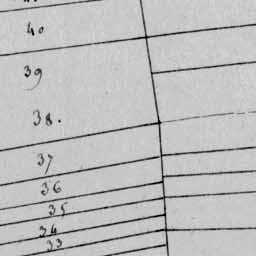 40
39
38.
37
36
35
34
33